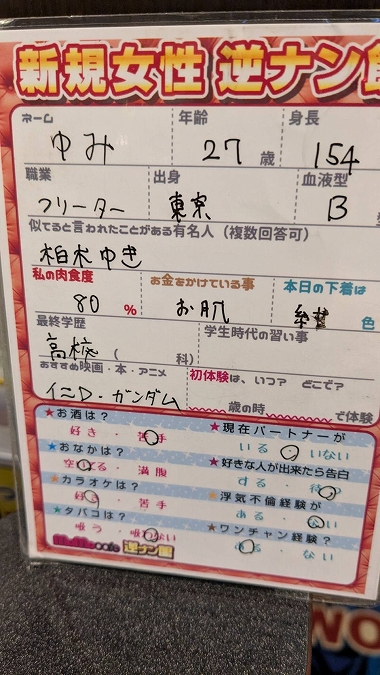 新規女性 逆ナン館
ネーム 年齢 身長
ゆみ 27 歳 154
職業 出身 血液型
フリーター 東京 B 型
似てると言われたことがある有名人（複数回答可）
柏木ゆき
私の肉食度 お金をかけている事 本日の下着は
80 % お肌 色
最終学歴 学生時代の習い事
高校 （ 科）
おすすめ映画・本・アニメ 初体験は、いつ？ どこで？
イニD・ガンダム 歳の時 で体験
★お酒は？ ★現在パートナーが
好き・苦手 いる・いない
★おなかは？ ★好きな人が出来たら告白
空いてる・満腹 する・待つ
★カラオケは？ ★浮気不倫経験が
好き・苦手 ある・ない
★タバコは？ ★ワンチャン経験？
吸う・吸わない ある・ない
cafe 逆ナン館